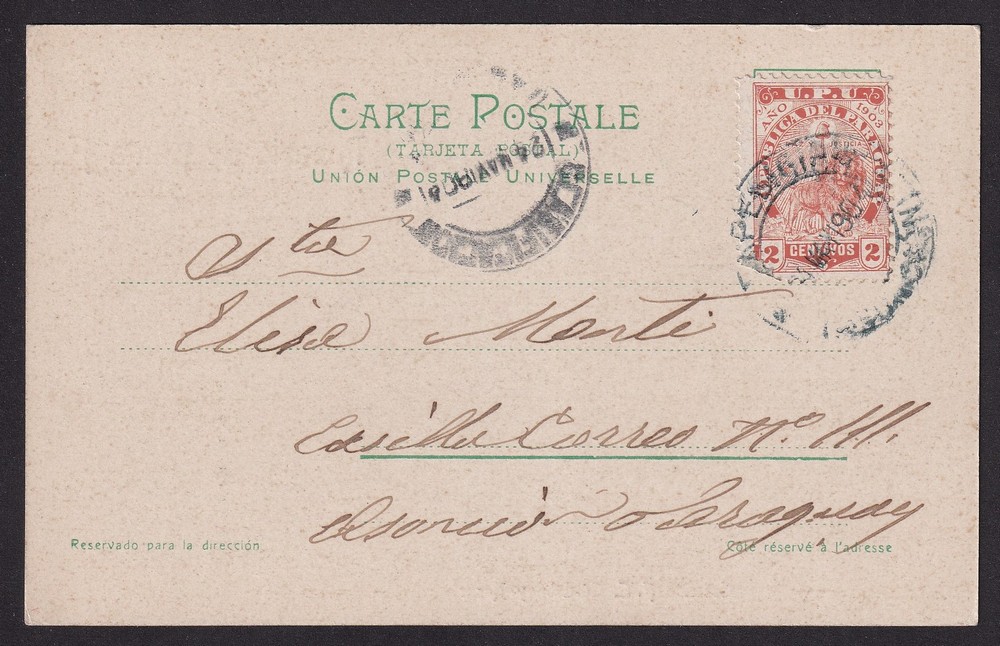 CARTE POSTALE
(TARJETA POSTAL)
UNIÓN POSTALE UNIVERSELLE
U.P.U
AÑO 1903
REPÚBLICA DEL PARAGUAY
2 CENTAVOS 2
24 MAY 190
MAY 190
Sta
Elisa Monti
Casilla Correo No. 111.
Asunción Paraguay
Reservado para la dirección
Côté réservé à l'adresse